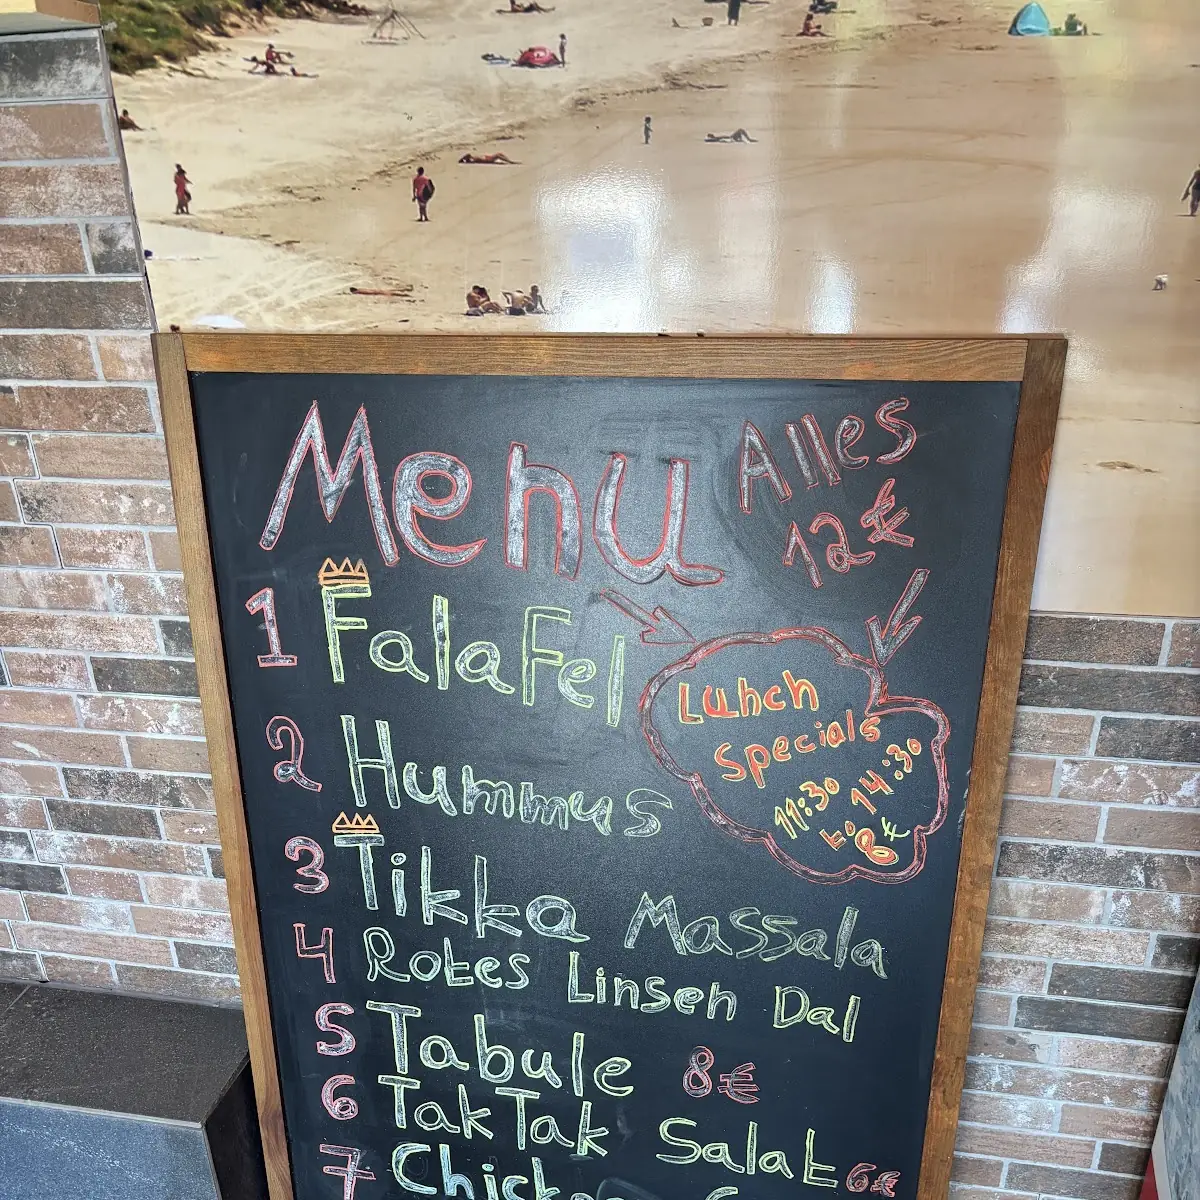 Menü
Alles
12€
1 Falafel
Lunch
Specials
11:30
to 14:30
8€
2 Hummus
3 Tikka Massala
4 Rotes Linsen Dal
5 Tabule 8€
6 TakTak Salat 6€
7